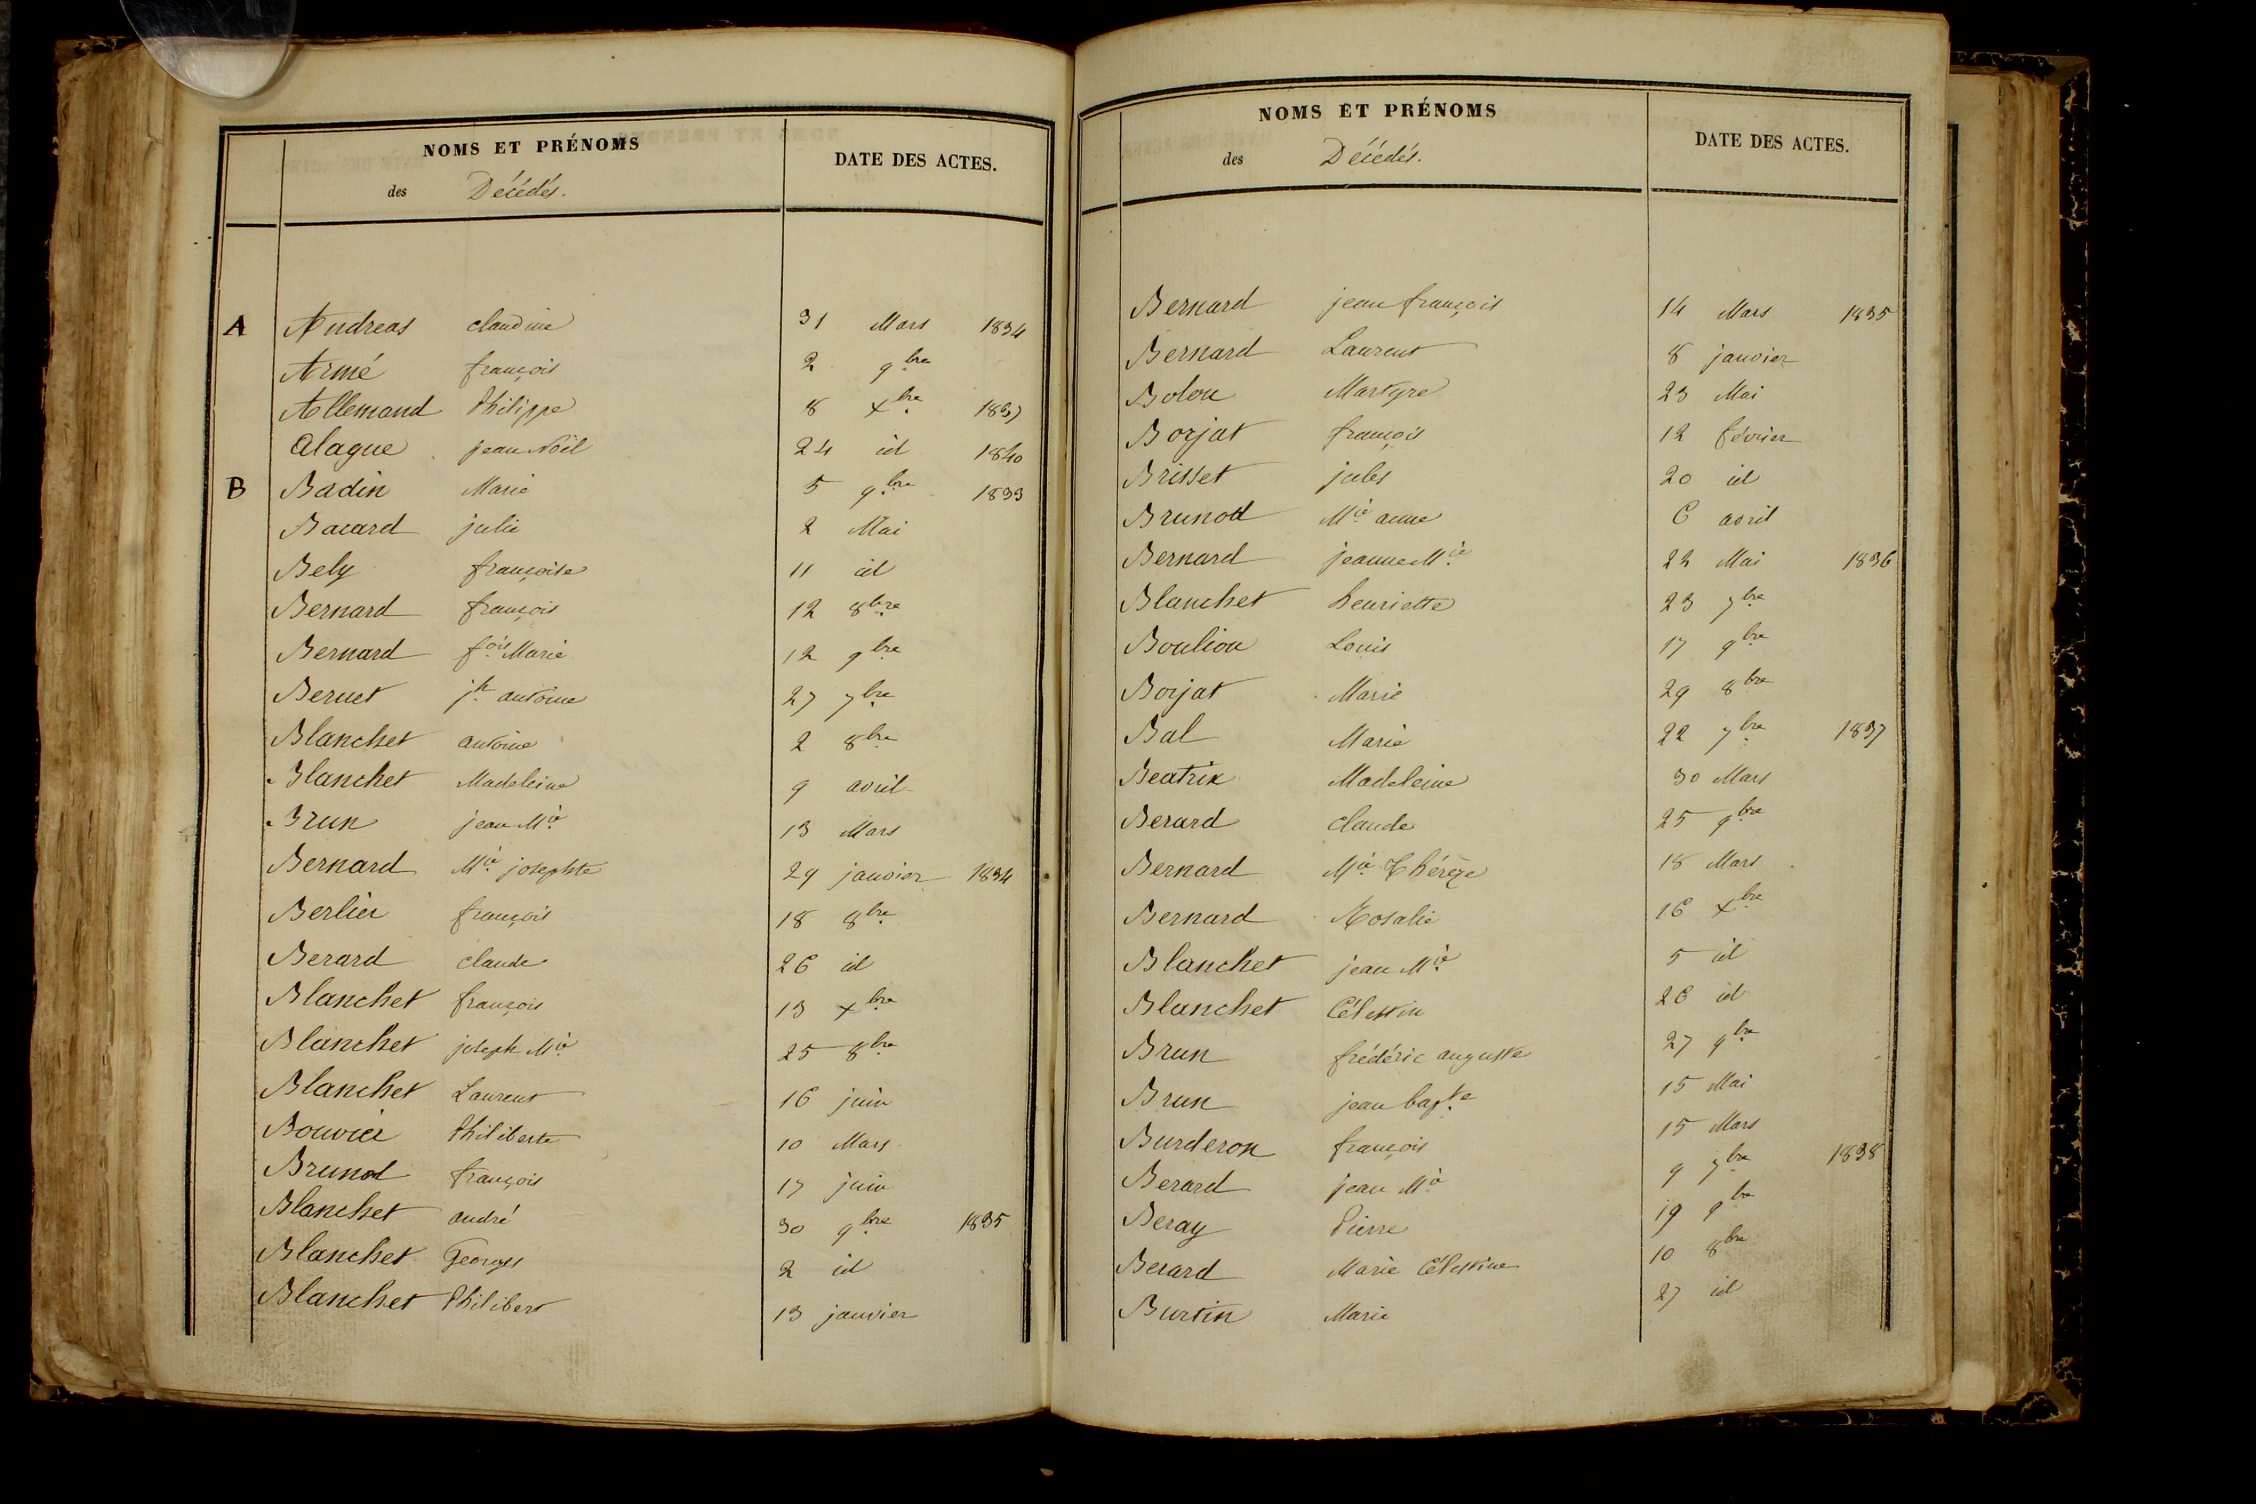 NOMS ET PRÉNOMS
DATE DES ACTES.
des Décédés.
A Andreas claudine 31 Mars 1834
Aimé françois 2 9bre
Allemand Philippe 8 Xbre 1837
alague jean Noël 24 id 1840
B Badin Marie 5 9bre 1833
Bacard julie 2 Mai
Bely françoise 11 id
Bernard françois 12 8bre
Bernard fois Marie 12 9bre
Bernet jh antoine 27 7bre
Blanchet antoine 2 8bre
Blanchet Madeleine 9 avril
Brun jean Mie 13 Mars
Bernard Mie josephte 29 janvier 1834
Berlier françois 18 8bre
Berard claude 26 id
Blanchet françois 13 Xbre
Blanchet joseph Mie 25 8bre
Blanchet Laurent 16 juin
Bouvier Philiberte 10 Mars
Brunod françois 17 juin
Blanchet andré 30 9bre 1835
Blanchet Georges 2 id
Blanchet Philibert 13 janvier
NOMS ET PRÉNOMS
DATE DES ACTES.
des Décédés.
Bernard jean françois 14 Mars 1835
Bernard Laurent 8 janvier
Bolon Martyre 23 Mai
Borjat françois 12 février
Brisset jules 20 id
Brunod Mie anne 6 avril
Bernard jeanne Mie 22 Mai 1836
Blanchet henriette 23 7bre
Bouliou Louis 17 9bre
Borjat Marie 29 8bre
Bal Marie 22 7bre 1837
Beatrix Madeleine 30 Mars
Berard claude 25 9bre
Bernard Mie Thérèze 18 Mars
Bernard Rosalie 16 Xbre
Blanchet jean Mie 5 id
Blanchet Célestin 26 id
Brun frédéric auguste 27 9bre
Brun jean bapte 15 Mai
Burderon françois 15 Mars
Berard jean Mie 9 7bre 1838
Beray Pierre 19 9bre
Berard Marie Célestine 10 8bre
Burtin Marie 27 id